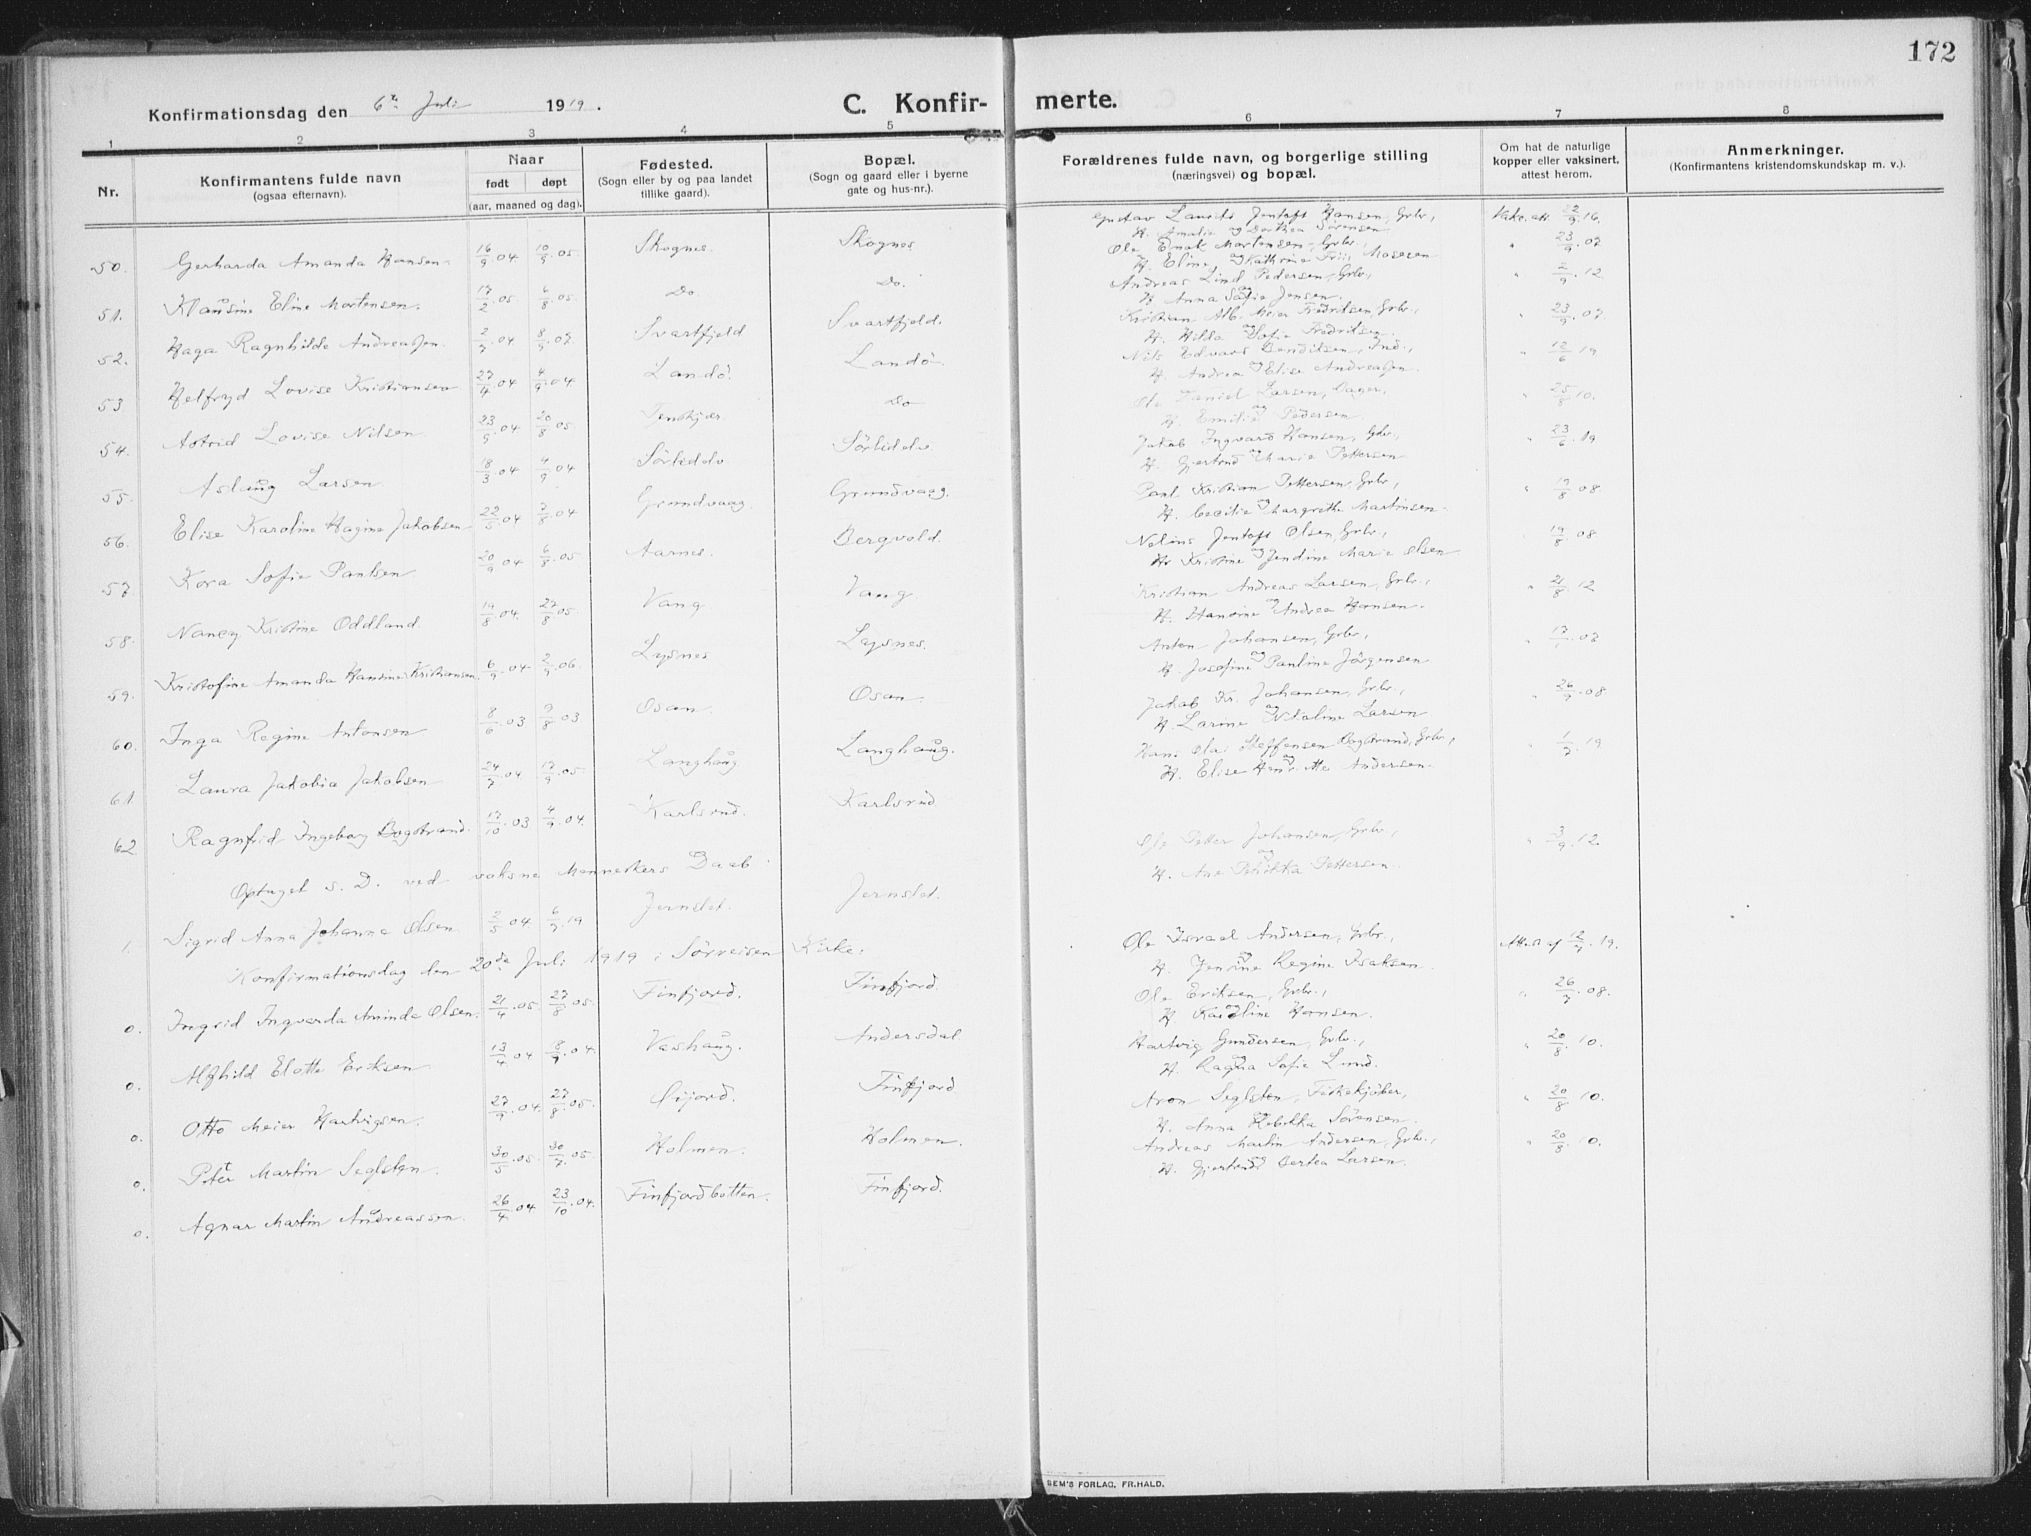 172
Konfirmationsdag den 6te Juli 1919.
C. Konfir- merte.
1 2 3 4 5 6 7 8
Nr.
Konfirmantens fulde navn
(ogsaa efternavn).
Naar
født døpt
(aar, maaned og dag).
Fødested.
(Sogn eller by og paa landet
tillike gaard).
Bopæl.
(Sogn og gaard eller i byerne
gate og hus-nr.).
Forældrenes fulde navn, og borgerlige stilling
(næringsvei) og bopæl.
Om hat de naturlige
kopper eller vaksinert.
attest herom.
Anmerkninger.
(Konfirmantens kristendomskundskap m. v.).
50. Gerharda Amanda Hansen 16/9 04 10/9 05 Skognes. Skognes Gustav Laurits Jentoft Hansen, Grbr.,
H. Amalie og Dorthea Sörensen Vakc. att 22/9 16.
51. Klausine Eline Mortensen. 17/2 05 6/8 05 Do Do. Ole Enok Mortensen, Grbr.,
H. Eline og Kathrine Friis Mosesen " 23/9 07
52. Haga Ragnhilde Andreassen. 2/7 04 8/9 07. Svartfjeld Svartfjeld. Andreas Lind Pedersen, Grbr,
H. Anna og Sofie Jensen. " 2/9. 12
53 Helfryd Lovise Kristiansen 27/4 04 4/9 04 Landö. Landö. Kristian Alb. Meier Fredriksen, Grbr.,
H. Hilda og Sofie Fredriksen. " 23/9. 07
54. Astrid Lovise Nilsen 23/9 04 20/8 05. Tenskjær Do Nils Edvard Bendiksen, Ind.,
H. Andrea og Elise Andreassen. " 12/6 19
55. Aslaug Larsen 18/3 04 4/9 04 Sörlidelv Sörlidelv. Ole Daniel Larsen,
H. Emilie og Pedersen " 25/8 10.
56. Elise Karoline Hagine Jakobsen 22/5 04 7/8 04 Grundvaag Grundvaag. Jakob Ingvard Hansen, Grbr.,
H. Gjertrud og Marie Pettersen " 23/6. 19
57. Kora Sofie Paulsen 20/9 04 6/8 05 Aarnes. Bergvold. Paul Kristian Pettersen, Grbr.,
H. Cecilie og Margrethe Martinsen. " 17/8 08.
58. Nancy Kristine Oddland. 19/8 04. 27/8 05. Vang. Vang Nelius Jentoft Olsen, Grbr.,
H. Kristine og Jendine Marie Olsen 19/8 08
59. Kristofine Amanda Hansine Kristiansen 6/9 04 2/9 06. Lysnes Lysnes. Kristian Andreas Larsen, Grbr.,
H. Hansine og Andrea Hansen. " 21/8 12
60. Inga Regine Antonsen 8/6 03 9/8 03 Osan. Osan. Anton Johansen, Grbr.,
H. Josefine og Pauline Jörgensen
61. Laura Jakobia Jakobsen 24/7 04 17/9 05 Langhaug Langhaug. Jakob Kr. Johansen, Grbr.,
H. Larine og Nikoline Larsen " 26/9 08
62 Ragnfrid Ingeborg Bogstrand. 17/10 03 4/9 04. Karlsrud. Karlsrud Hans Olai Steffensen Bogstrand, Grbr.,
H. Elise og Henriette Andersen. " 1/7. 19
Optaget s. D. ved voksne Menneskers Daab
1. Sigrid Anna Johanna Olsen 2/5 04. 6/7 19 Jernslet. Jernslet. Ole Petter Johansen, Grbr.,
H. Ane og Petrikka Pettersen. " 3/9. 12.
Konfirmationsdag den 20de Juli 1919 i Sörreisen Kirke.
0. Ingrid Ingvarda Aminda Olsen 21/4 05. 27/8 05. Finfjord. Finfjord. Ole Israel Andersen, Grbr.,
H. Jensine og Regine Isaksen. Attest af 12/7. 19.
0. Alfhild Elotte Eriksen 13/4 04 8/9 04. Væshaug. Andersdal Ole Eriksen, Grbr.,
H. Karoline og Hansen. " 26/7. 08.
0. Otto Meier Hartvigsen. 27/9. 04. 27/8 05. Öijord. Finfjord Hartvig Gundersen, Grbr.,
H. Ragna og Sofie Lund. " 20/8. 10.
0. Peter Martin Seglsten. 30/5 05. 30/7. 05. Holmen. Holmen. Aron Seglsten, Fiskekjöber,
H. Anna og Rebekka Sörensen. " 20/8. 10.
0. Agnar Martin Andreassen. 26/4 04 23/10 04. Finfjordbotten. Finfjord. Andreas Martin Andersen, Grbr.,
H. Gjertrud og Bertea Larsen. " 20/8. 10.
SEM'S FORLAG, FR.HALD.